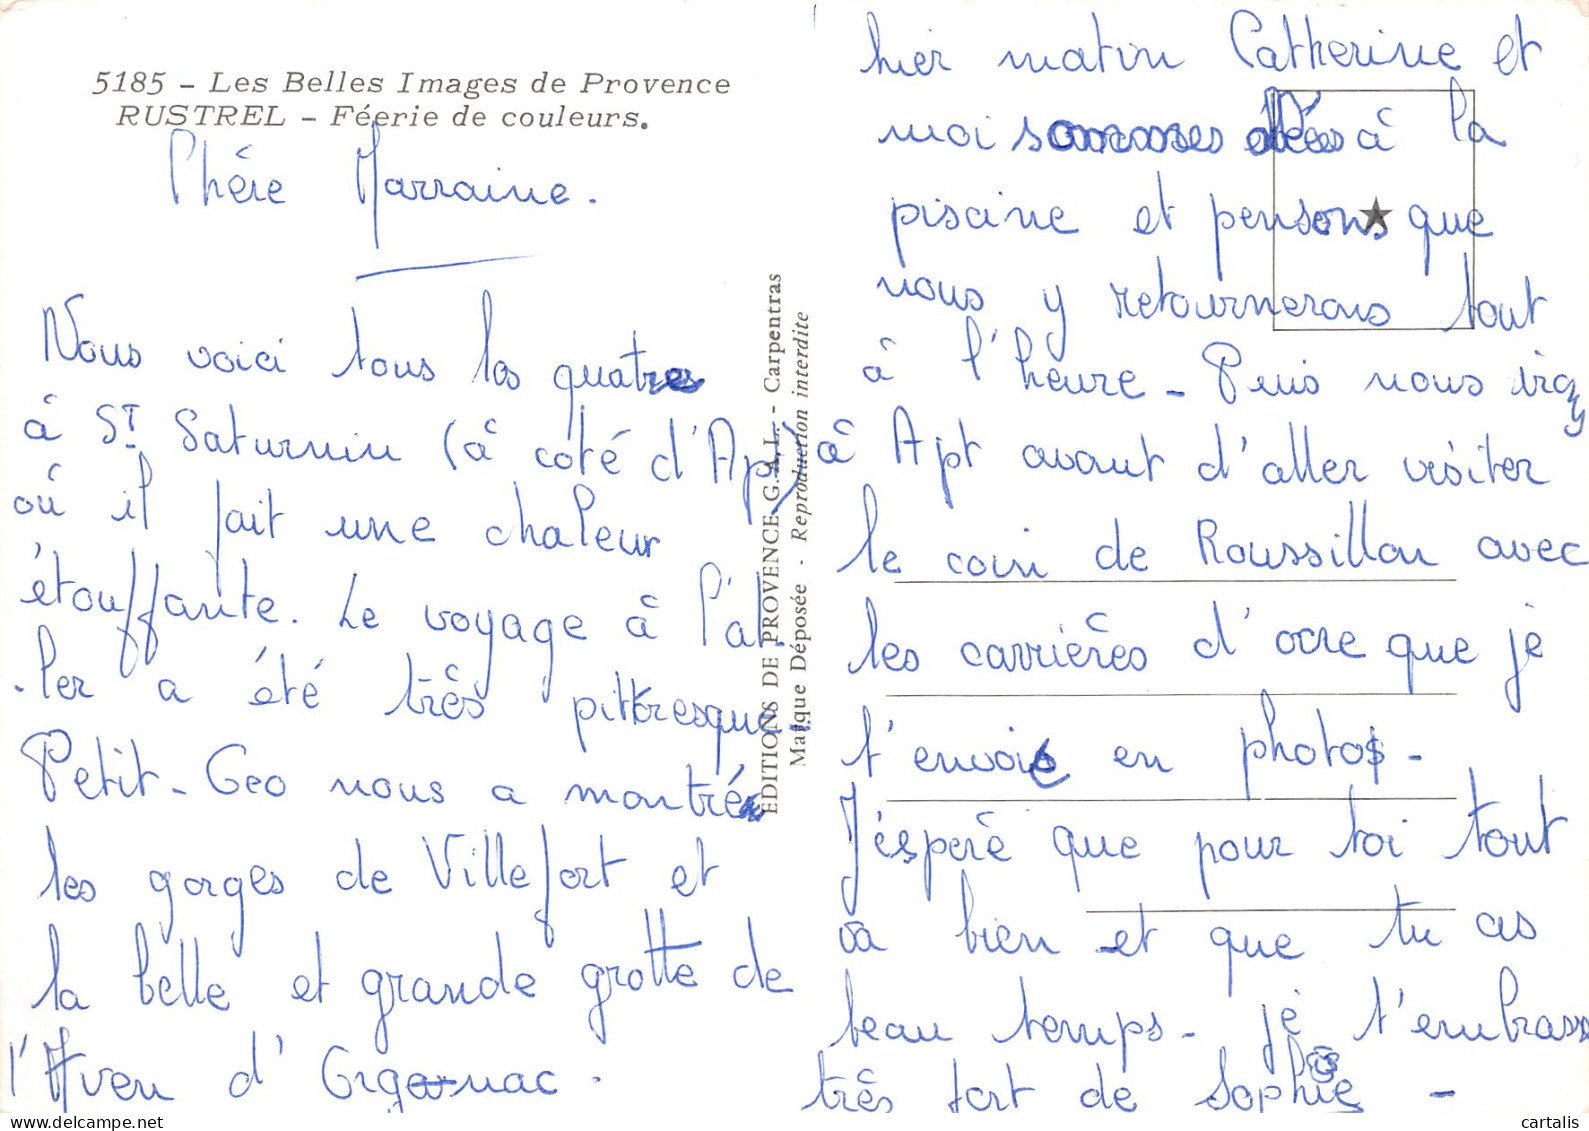 5185 – Les Belles Images de Provence
RUSTREL – Féerie de couleurs.
Chère Marraine.
Nous voici tous les quatres
à St Saturnin (à coté d'Apt)
où il fait une chaleur
étouffante. Le voyage à l'al-
-ler a été très pittoresque.
Petit-Geo nous a montré
les gorges de Villefort et
la belle et grande grotte de
l'Aven d'Orgnac.
EDITIONS DE PROVENCE G. A. L. - Carpentras
Marque Déposée - Reproduction interdite
hier matin Catherine et
moi sommes allées à la
piscine et pensons que
nous y retournerons tout
à l'heure - Puis nous irons
à Apt avant d'aller visiter
le coin de Roussillon avec
les carrières d'ocre que je
t'envoie en photos -
J'espère que pour toi tout
va bien et que tu as
beau temps - je t'embrasse
très fort de Sophie -
delcampe.net
cartalis